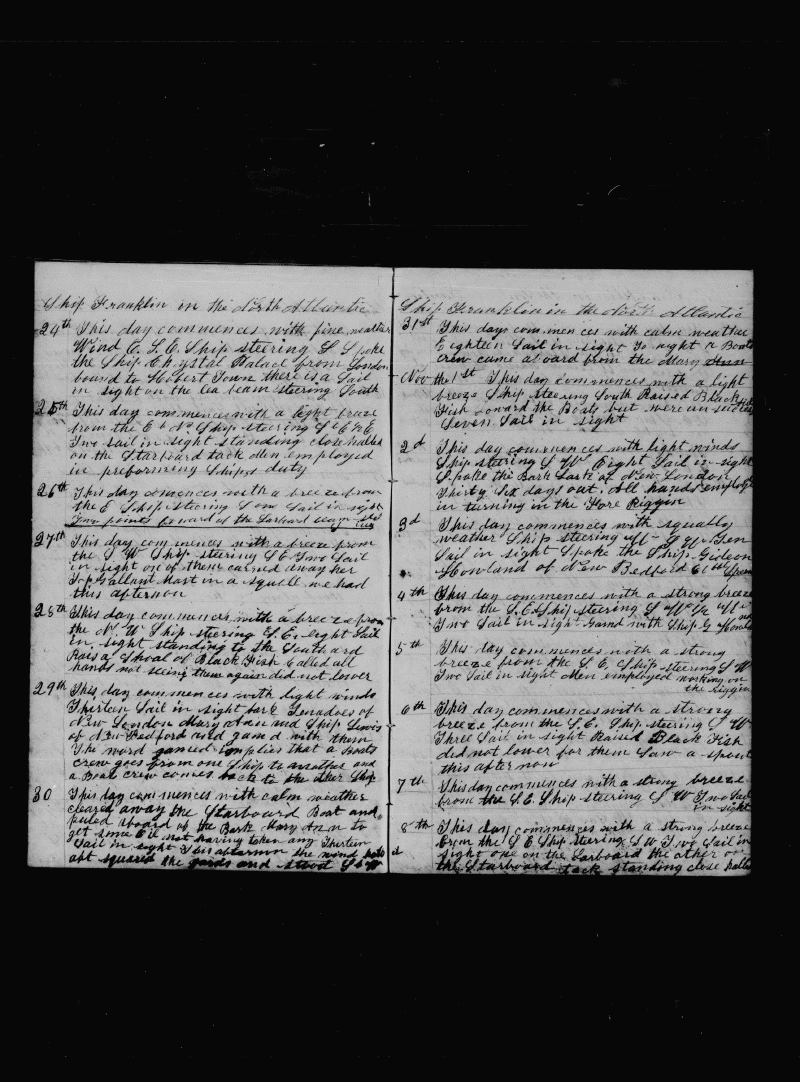 Ship Franklin in the North Atlantic
24th This day commences with fine weather
Wind E. S. E. Ship steering S Spoke
the Ship Chrystal Palace from London
bound to Hobert Town there is a Sail
in sight on the lea beam steering South
25th This day commences with a light breze
from the E b N. Ship steering S E
Two sail in sight standing close halled
on the Starboard tack Men employed
in preforming Ships duty
26th This day comences with a breeze from
the E Ship Steering S one Sail in sight
Two points forward of the Larbard
27th This day comences with a breeze from
the S W Ship steering S E Two Sail
in sight one of them carried away her
Top Gallant Mast in a squall we had
this afternoon
28th This day commences with a breeze from
the N. W Ship steering S. E. eight Sail
in sight standing to the Southard
Rais a Shoal of Black Fish Called all
hands not seeing them again did not lower
29th This day commences with light winds
Thirteen Sail in sight bark of
New London Mary Ann and Ship Lewis
of New Bedford and gamed with them
The word gamed implies that a Boats
crew goes from one Ship to another and
a Boat crew comes back to the other Ship
30 This day commences with calm weather
cleared away the Starboard Boat and
puled aboard of the Bark Mary Ann to
get some Oil not having taken any Thirteen
Sail in sight This afternun the wind
aft squared the yards and stood S b W
Ship Franklin in the North Atlantic
31st This day commences with calm weather
Eighteen Sail in sight To night a Boats
crew came aboard from the Mary Ann
Nov the 1st This day commences with a light
breeze Ship steering South Raised Black
Fish the Boats but were
Seven Sail in sight
2d This day commences with light winds
Ship steering S W Eight Sail in sight
Spoke the Bark Lark of New London
Thirty Six days out. All hands employed
in turning in the Fore Riggin
3d This day commences with squally
weather Ship steering S W Ten
Sail in sight Spoke the Ship Gideon
Howland of New Bedford
4th This day commences with a strong breeze
from the S. E Ship steering S W
Two Sail in sight Gamd with Ship G Howland
5th This day commences with a strong
breeze from the S. E. Ship steering S W
Two Sail in sight Men employed working on
the riggin
6th This day commences with a strong
breeze from the S. E. Ship steering S W
Three Sail in sight Raised Black Fish
did not lower for them Saw a spout
this afternoon
7th This day commences with a strong breeze
from the S. E. Ship steering S W Two Sail
in sight
8th This day commences with a strong breeze
from the S E Ship steering S W Two Sail in
sight one on the Larboard the other on
the Starboard tack standing close halled